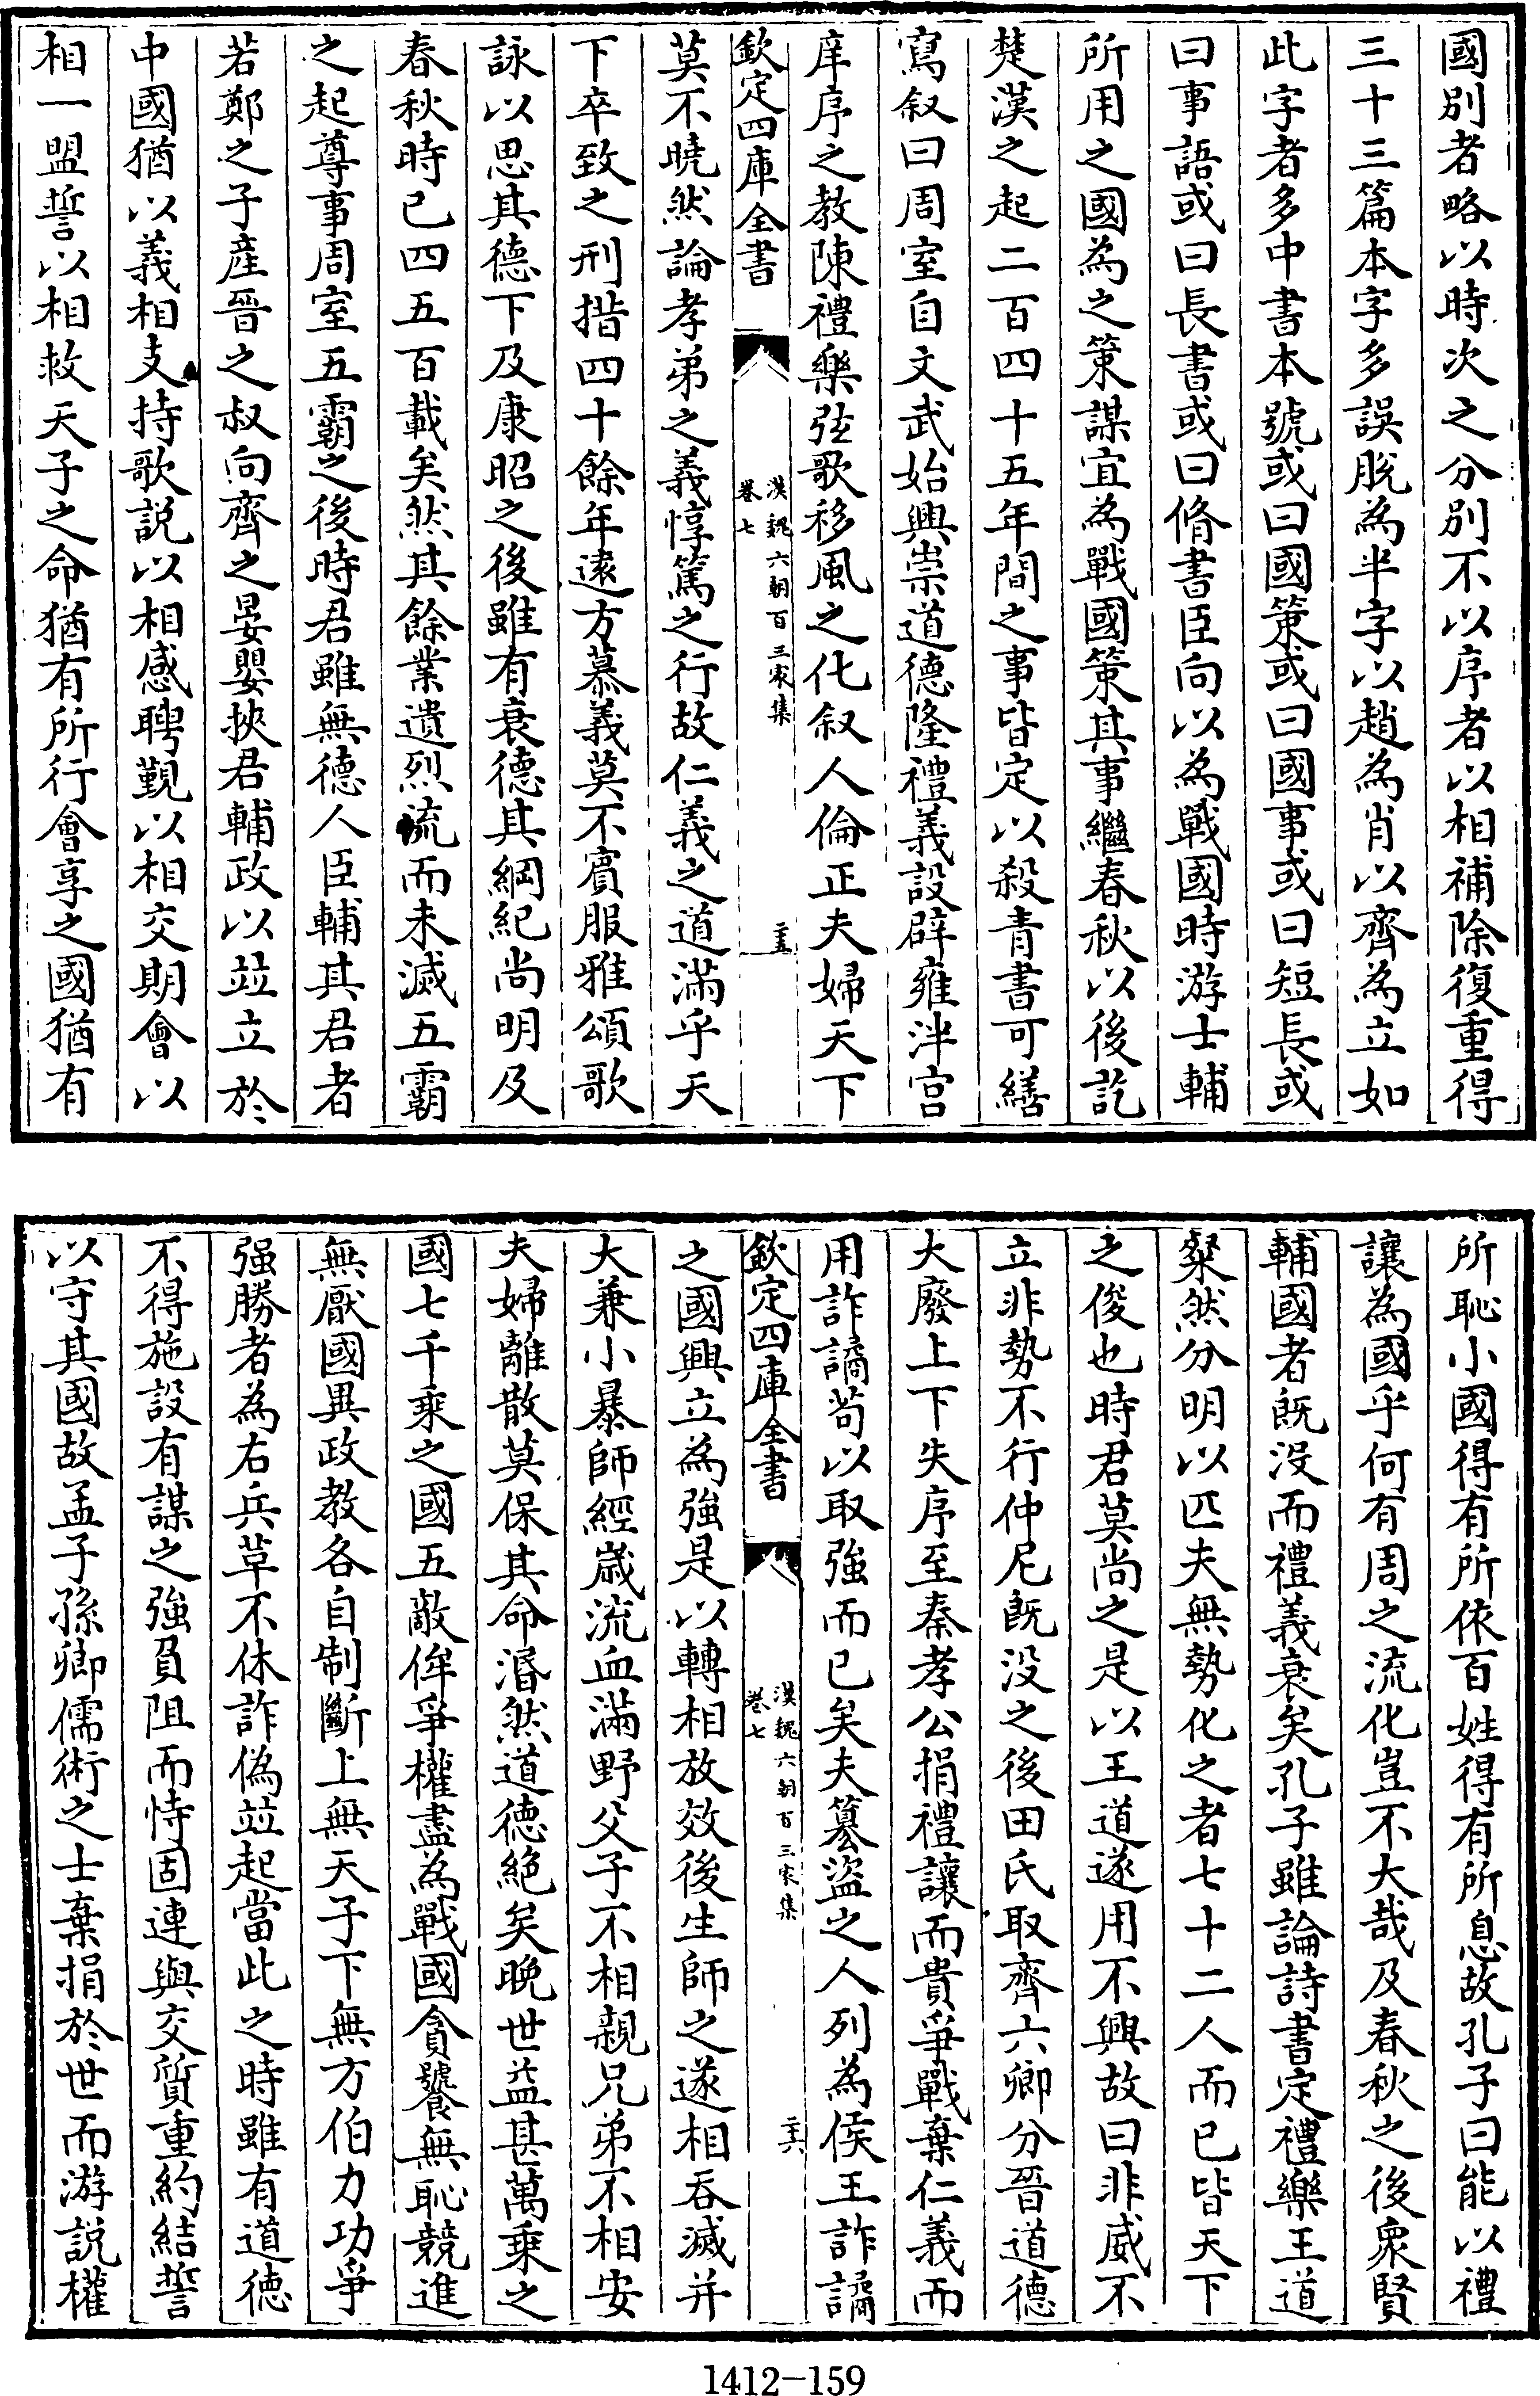 國別者略以時次之分別不以序者以相補除復重得
三十三篇本字多誤脫為半字以趙為肖以齊為立如
此字者多中書本號或曰國策或曰國事或曰短長或
曰事語或曰長書或曰脩書臣向以為戰國時游士輔
所用之國為之策謀宜為戰國策其事繼春秋以後訖
楚漢之起二百四十五年間之事皆定以殺青書可繕
寫叙曰周室自文武始興崇道德隆禮義設辟雍泮宫
庠序之教陳禮樂弦歌移風之化叙人倫正夫婦天下
欽定四庫全書
漢魏六朝百三家集
卷七
二十五
莫不曉然論孝弟之義惇篤之行故仁義之道滿乎天
下卒致之刑措四十餘年逺方慕義莫不賓服雅頌歌
詠以思其德下及康昭之後雖有衰德其綱紀尚明及
春秋時已四五百載矣然其餘業遺烈流而未滅五霸
之起尊事周室五霸之後時君雖無德人臣輔其君者
若鄭之子產晉之叔向齊之晏嬰挾君輔政以竝立於
中國猶以義相支持歌説以相感聘覲以相交期會以
相一盟誓以相救天子之命猶有所行會享之國猶有
所恥小國得有所依百姓得有所息故孔子曰能以禮
讓為國乎何有周之流化豈不大哉及春秋之後衆賢
輔國者既沒而禮義衰矣孔子雖論詩書定禮樂王道
粲然分明以匹夫無勢化之者七十二人而已皆天下
之俊也時君莫尚之是以王道遂用不興故曰非威不
立非勢不行仲尼既没之後田氏取齊六卿分晉道德
大廢上下失序至秦孝公捐禮讓而貴爭戰棄仁義而
用詐譎苟以取強而已矣夫篡盗之人列為侯王詐譎
欽定四庫全書
漢魏六朝百三家集
卷七
二十六
之國興立為強是以轉相放效後生師之遂相吞滅并
大兼小暴師經嵗流血滿野父子不相親兄弟不相安
夫婦離散莫保其命湣然道德絶矣晚世益甚萬乘之
國七千乘之國五敵侔爭權盡為戰國貪饕無恥競進
無厭國異政教各自制斷上無天子下無方伯力功爭
强勝者為右兵革不休詐偽竝起當此之時雖有道德
不得施設有謀之強負阻而恃固連與交質重約結誓
以守其國故孟子孫卿儒術之士棄捐於世而游説權
1412-159